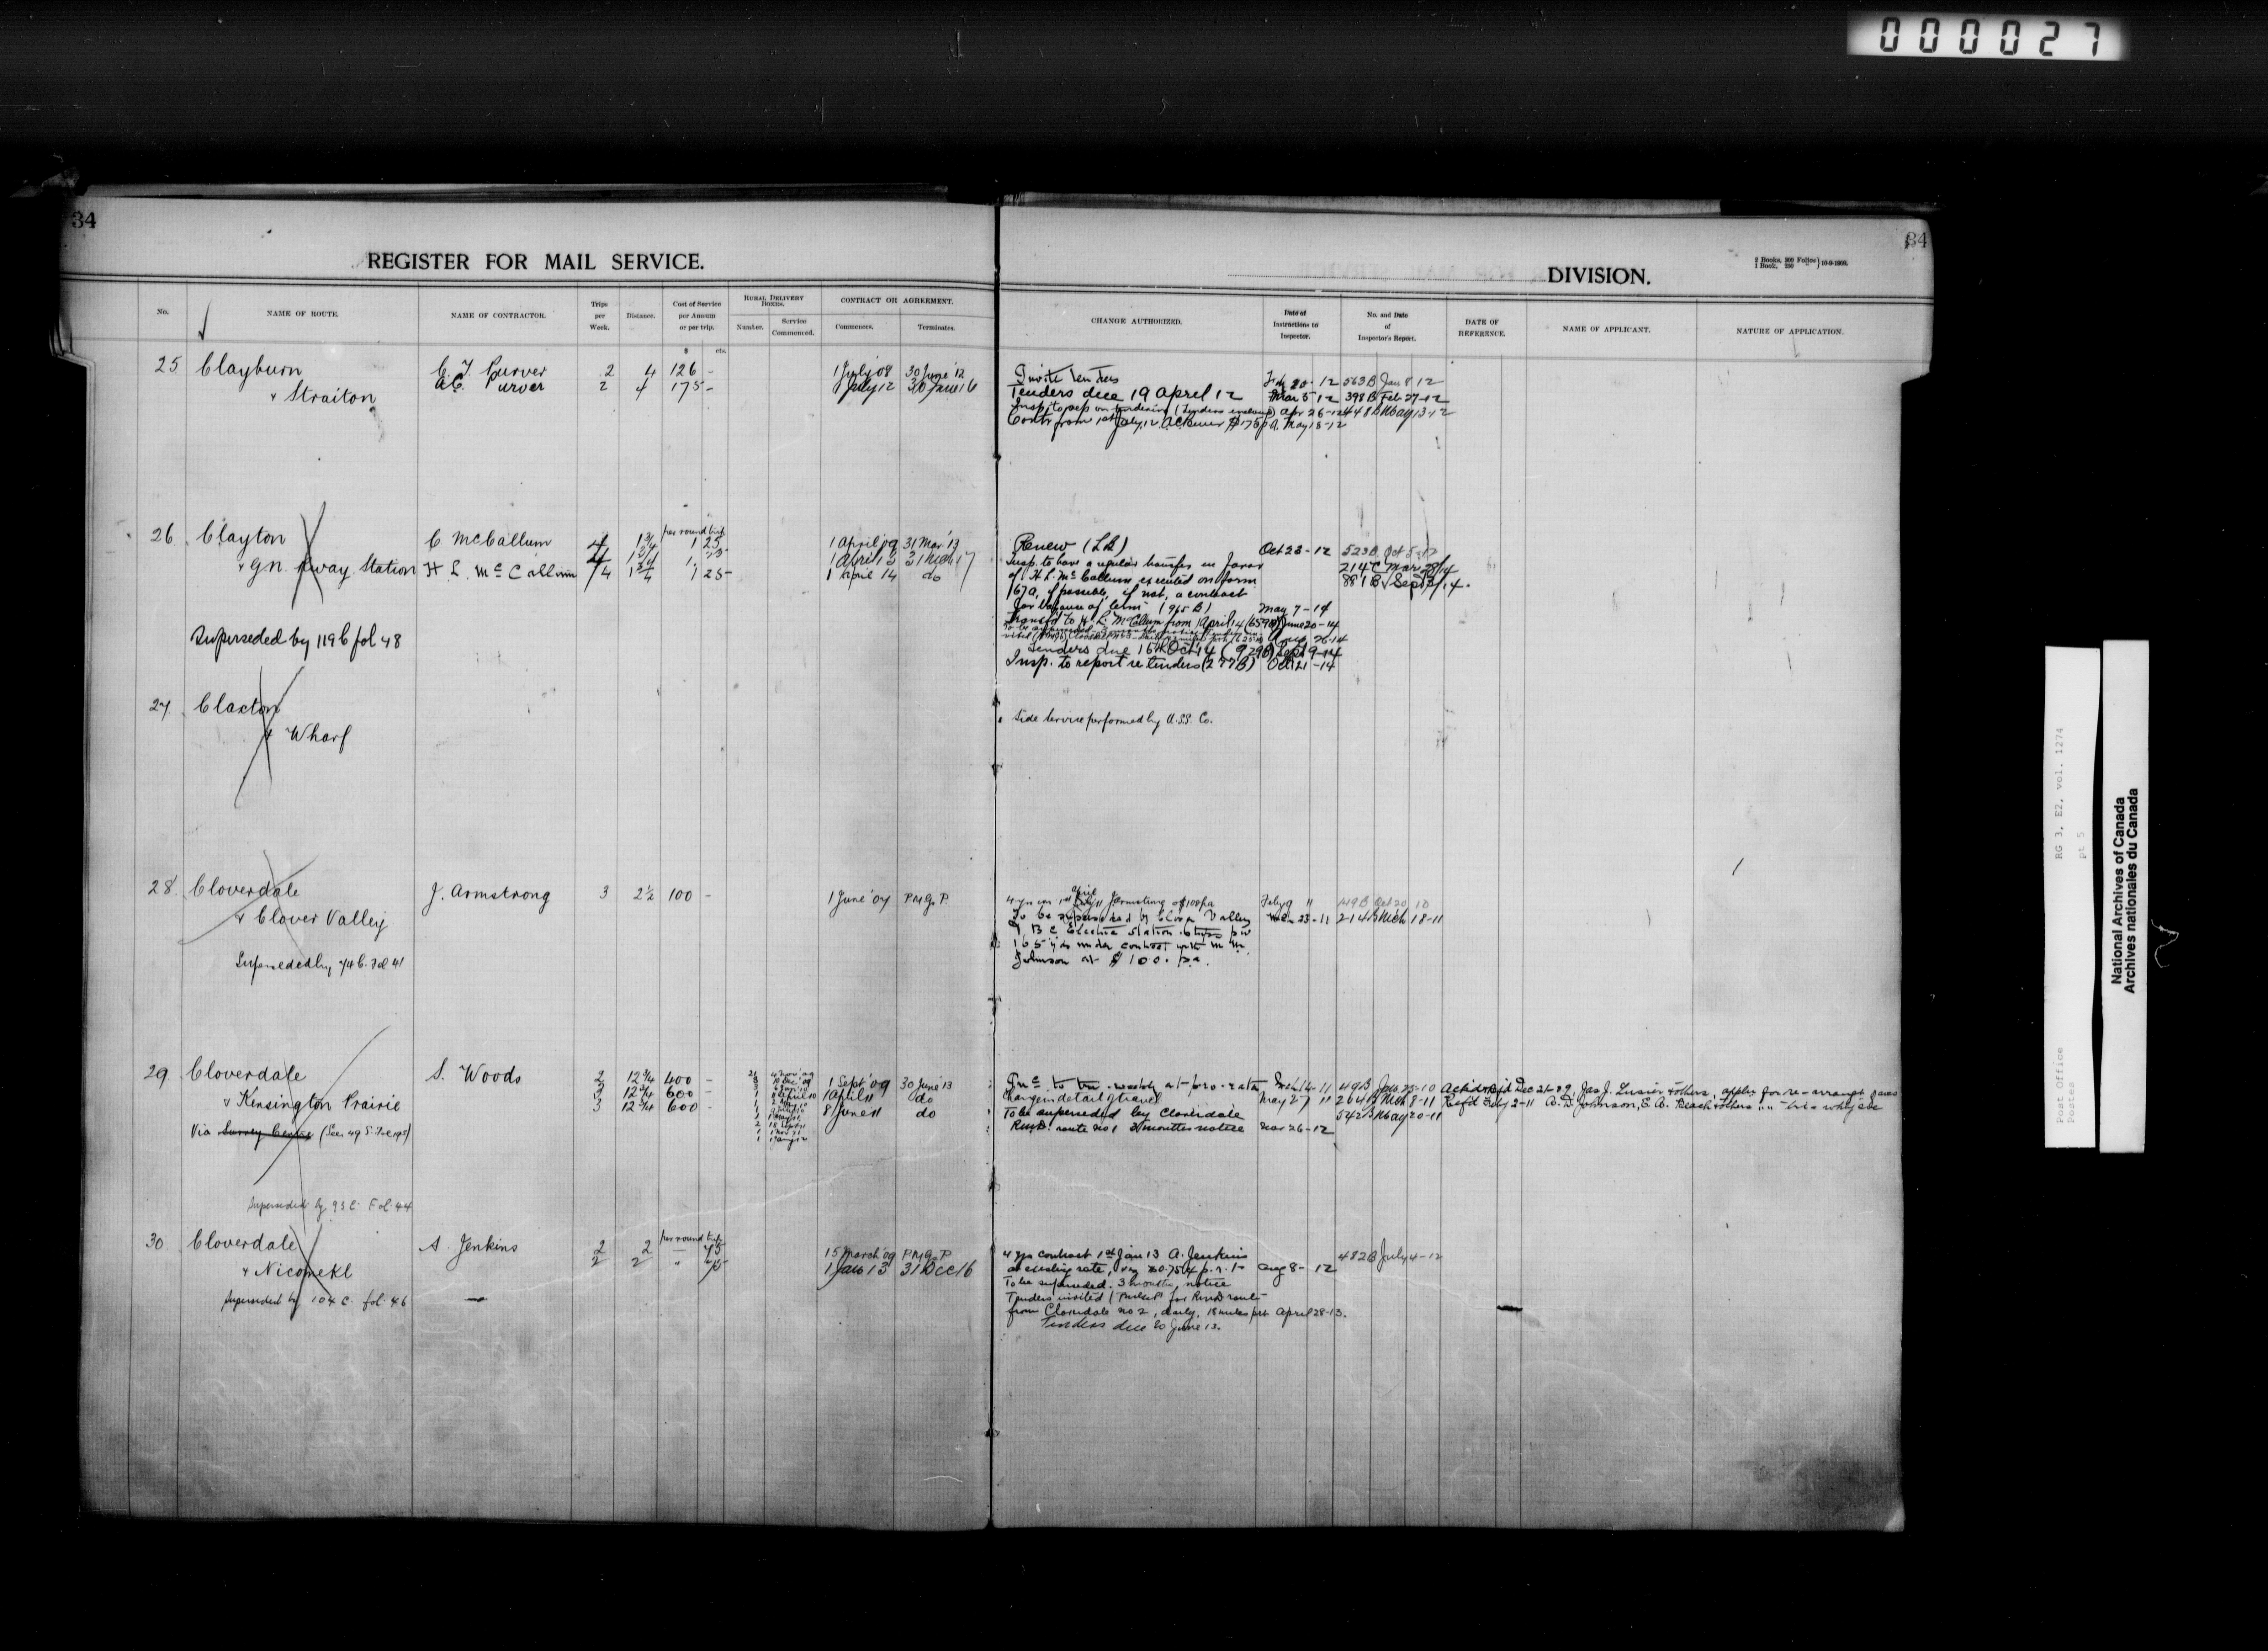 000027
34
34
REGISTER FOR MAIL SERVICE.
DIVISION.
2 Books, 300 Folios
1 Book, 250 " } 10-9-1909.
No.
NAME OF ROUTE.
NAME OF CONTRACTOR.
Trips per Week.
Distance.
Cost of Service per Annum or per trip.
RURAL DELIVERY BOXES.
Number.
Service Commenced.
CONTRACT OR AGREEMENT.
Commences.
Terminates.
CHANGE AUTHORIZED.
Date of Instructions to Inspector.
No. and Date of Inspector's Report.
DATE OF REFERENCE.
NAME OF APPLICANT.
NATURE OF APPLICATION.
$ cts.
25 Clayburn C. T. Purver 2 4 126 - 1 July '08 30 June '12
& Straiton A.C. Purver 2 4 175 - 1 July 12 30 June 16
Invite tenders 563 B Jan 8 12
Tenders due 19 April 12 Mar 5 12 398 B Feb 27-12
Insp. to rep on tendering (tenders enclosed) Apr 26-12 448 B May 13-12
Contr from 1st July 12 AC Purver $175 p.a. May 18-12
26 Clayton C McCallum per round trip
4 1 3/4 1 25 1 April '09 31 Mar '13
& G.N. Rway. Station 4 1 3/4 1. 1 April 13 31 Mch 17
H L. McCallum 4 1 3/4 1 25 - 1 April 14 do
Superseded by 119 C fol 48
Renew (LB) Oct 23-12 523 B Oct 5-12
Insp. to have a regular transfer in favor 214 C Mar 28/14
of H L. McCallum executed on form 881 B Sept 3/14.
167a, if possible, if not, a contract
for balance of term (965 B) May 7-14
Transfd to H. L. McCallum from 1 April 14 (659 B) June 20-14
Aug 26-14
Tenders due 16th Oct 14 (929 B) Sept 9-14
Insp. to report re tenders (277 B) Oct 21-14
27 Claxton
& Wharf
Side Service performed by U.S.S. Co.
28 Cloverdale J. Armstrong 3 2 1/2 100 - 1 June '07 P.M.G. P.
& Clover Valley
Superseded by 74 C. Fol 41
April
4 yrs con 1st July 11 J Armstrong @ $100 pa Feby 9 11 419 B Oct 20 10
To be superseded by Clover Valley Mch 23-11 214 B Mch 18-11
& B C Electric Station 6 trips p w
165 yds under contract with M M
Johnson at $100. pa.
29 Cloverdale S. Woods 2 12 3/4 400 - 1 Sept '09 30 June '13
& Kensington Prairie 3 12 3/4 600 - 1 April 11 do
3 12 3/4 600 - 8 June 11 do
Via Survey Centre (See 49 S. Fol 195)
Superseded by 93 C. Fol 44
Inc to tri-weekly at pro-rata Mch 14-11 49 B Jan 25-10
Change in detail of travel May 27 11 204 B Mch 8-11
To be superseded by Cloverdale 542 B May 20-11
R.M.D. route No 1 3 months notice Nov 26-12
Jas. J. Lusier & others, apply for re-arrangt
Refd Feby 2-11 A. D. Johnson, E. A. Beach & others " " tri-wkly sce
30 Cloverdale A. Jenkins per round trip
2 2 - 75 15 March '09 P.M.G. P
& Nicomekl 2 2 " 75 1 Jan 13 31 Dec 16
Superseded by 104 C. fol. 46
4 yrs contract 1st Jan 13 A. Jenkins 482 B July 4-12
at existing rate, viz $0.75 p. r. t. Aug 8-12
To be superseded. 3 months notice
Tenders invited for R.M.D. route
from Cloverdale No 2, daily, 18 miles April 28-13.
Tenders due 20 June 13.
RG 3, E2, vol. 1274
pt 5
Post Office
Postes
National Archives of Canada
Archives nationales du Canada